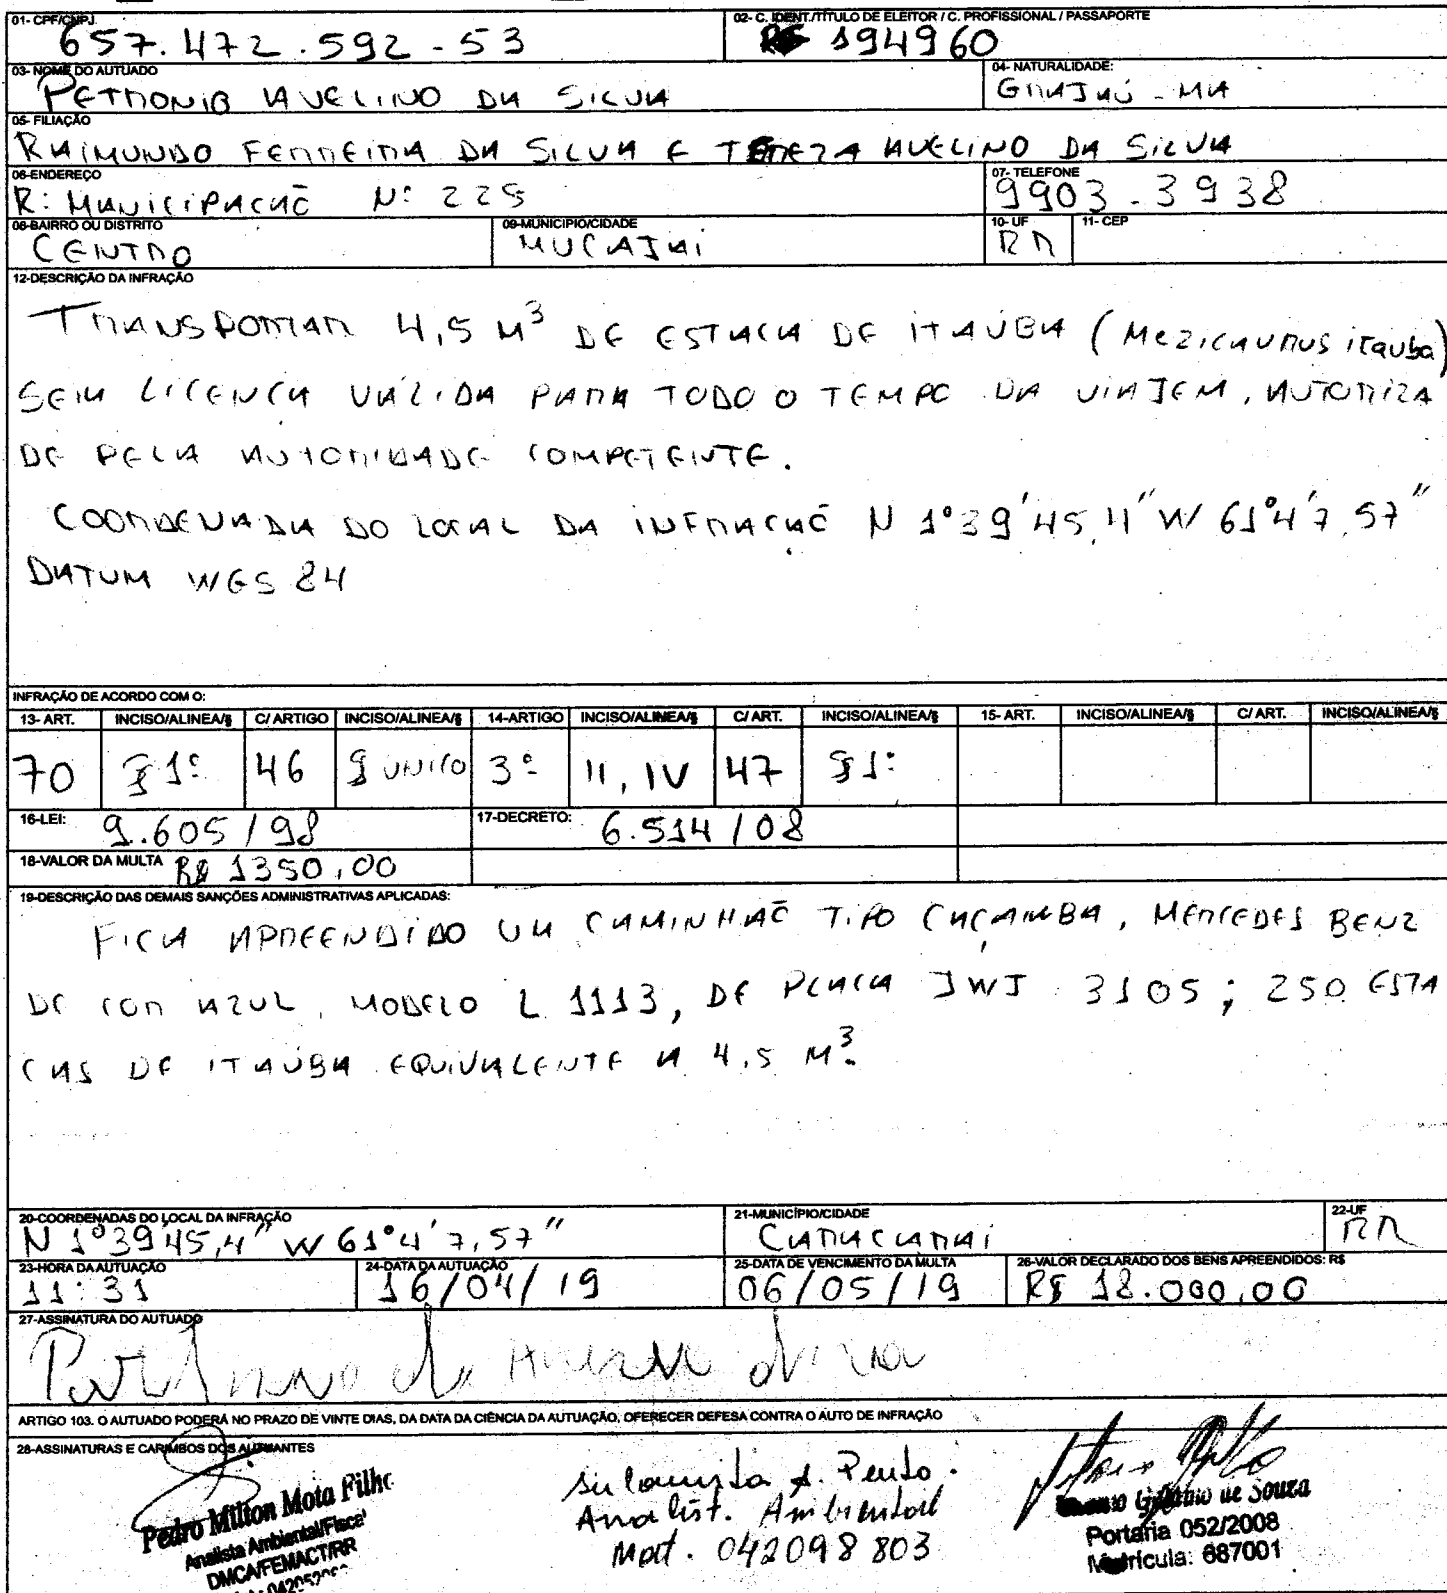 01- CPF/CNPJ 02- C. IDENT./TÍTULO DE ELEITOR / C. PROFISSIONAL / PASSAPORTE
657.472.592-53 194960
03- NOME DO AUTUADO 04- NATURALIDADE:
PETRONIO AVELINO DA SILVA GRAJAÚ - MA
05- FILIAÇÃO
RAIMUNDO FERREIRA DA SILVA E TEREZA AVELINO DA SILVA
06-ENDEREÇO 07- TELEFONE
R: MUNICIPAÇAÕ Nº 225 9903-3938
08-BAIRRO OU DISTRITO 09-MUNICIPIO/CIDADE 10- UF 11- CEP
CENTRO MUCAJAI RR
12-DESCRIÇÃO DA INFRAÇÃO
TRANSPORTAR 4,5 M³ DE ESTACA DE ITAÚBA (Mezicaurus itauba)
SEM LICENÇA VÁLIDA PARA TODO O TEMPO DA VIAJEM, AUTORIZA
DE PELA AUTORIDADE COMPETENTE.
COORDENADA DO LOCAL DA INFRAÇAÕ N 1°39'45,4" W 61°4'7,57"
DATUM WGS 84
INFRAÇÃO DE ACORDO COM O:
13- ART. INCISO/ALINEA/§ C/ ARTIGO INCISO/ALINEA/§ 14-ARTIGO INCISO/ALINEA/§ C/ ART. INCISO/ALINEA/§ 15- ART. INCISO/ALINEA/§ C/ ART. INCISO/ALINEA/§
70 § 1º 46 § UNICO 3º II, IV 47 § 1º
16-LEI: 9.605/98 17-DECRETO: 6.514/08
18-VALOR DA MULTA R$ 1350,00
19-DESCRIÇÃO DAS DEMAIS SANÇÕES ADMINISTRATIVAS APLICADAS:
FICA APREENDIDO UM CAMINHAÕ TIPO CAÇAMBA, MERCEDES BENZ
DE COR AZUL, MODELO L 1113, DE PLACA JWJ 3105; 250 ESTA
CAS DE ITAÚBA EQUIVALENTE A 4,5 M³.
20-COORDENADAS DO LOCAL DA INFRAÇÃO 21-MUNICÍPIO/CIDADE 22-UF
N 1°39'45,4" W 61°4'7,57" CARACARAI RR
23-HORA DA AUTUAÇÃO 24-DATA DA AUTUAÇÃO 25-DATA DE VENCIMENTO DA MULTA 26-VALOR DECLARADO DOS BENS APREENDIDOS: R$
11:31 16/04/19 06/05/19 R$ 18.000,00
27-ASSINATURA DO AUTUADO
ARTIGO 103. O AUTUADO PODERÁ NO PRAZO DE VINTE DIAS, DA DATA DA CIÊNCIA DA AUTUAÇÃO, OFERECER DEFESA CONTRA O AUTO DE INFRAÇÃO
28-ASSINATURAS E CARIMBOS DOS AUTUANTES
Pedro Milton Mota Filho
Analista Ambiental/Fiscal
DMCA/FEMACT/RR
Analist. Ambiental
Mat. 042098803
de Souza
Portaria 052/2008
Matrícula: 687001